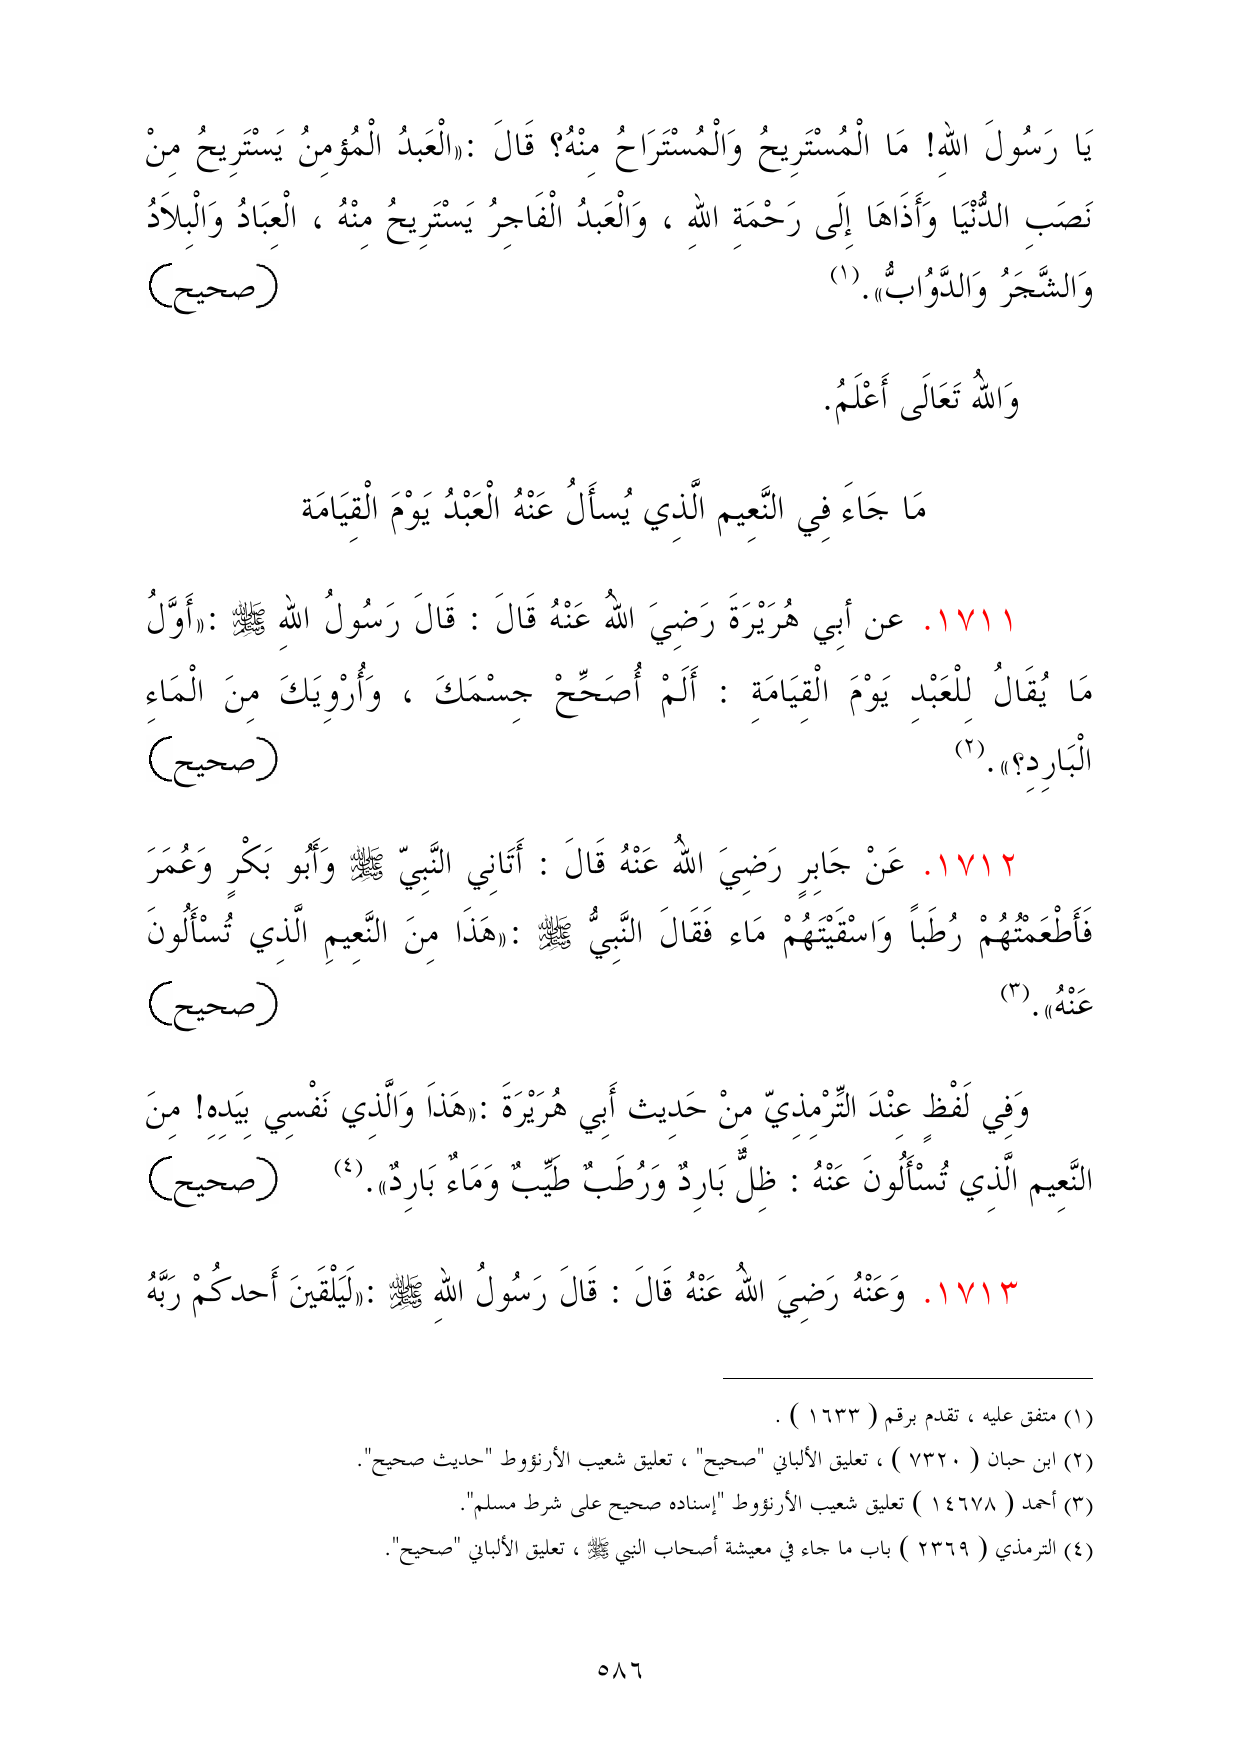 يَا رَسُولَ اللهِ! مَا الْمُسْتَرِيحُ وَالْمُسْتَرَاحُ مِنْهُ؟ قَالَ :«الْعَبدُ الْمُؤمِنُ يَسْتَرِيحُ مِنْ
نَصَبِ الدُّنْيَا وَأَذَاهَا إِلَى رَحْمَةِ اللهِ ، وَالْعَبدُ الْفَاجِرُ يَسْتَرِيحُ مِنْهُ ، الْعِبَادُ وَالْبِلاَدُ
وَالشَّجَرُ وَالدَّوُابُّ».(١) (صحيح)
وَاللهُ تَعَالَى أَعْلَمُ.
مَا جَاءَ فِي النَّعِيم الَّذِي يُسأَلُ عَنْهُ الْعَبْدُ يَوْمَ الْقِيَامَة
١٧١١. عن أبِي هُرَيْرَةَ رَضِيَ اللهُ عَنْهُ قَالَ : قَالَ رَسُولُ اللهِ ﷺ :«أَوَّلُ
مَا يُقَالُ لِلْعَبْدِ يَوْمَ الْقِيَامَةِ : أَلَمْ أُصَحِّحْ جِسْمَكَ ، وَأُرْوِيَكَ مِنَ الْمَاءِ
الْبَارِدِ؟».(٢) (صحيح)
١٧١٢. عَنْ جَابِرٍ رَضِيَ اللهُ عَنْهُ قَالَ : أَتَانِي النَّبِيّ ﷺ وَأَبُو بَكْرٍ وَعُمَرَ
فَأَطْعَمْتُهُمْ رُطَباً وَاسْقَيْتَهُمْ مَاء فَقَالَ النَّبِيُّ ﷺ :«هَذَا مِنَ النَّعِيمِ الَّذِي تُسْأَلُونَ
عَنْهُ».(٣) (صحيح)
وَفِي لَفْظٍ عِنْدَ التِّرْمِذِيّ مِنْ حَدِيث أَبِي هُرَيْرَةَ :«هَذاَ وَالَّذِي نَفْسِي بِيَدِهِ! مِنَ
النَّعِيم الَّذِي تُسْأَلُونَ عَنْهُ : ظِلٌّ بَارِدٌ وَرُطَبٌ طَيِّبٌ وَمَاءٌ بَارِدٌ».(٤) (صحيح)
١٧١٣. وَعَنْهُ رَضِيَ اللهُ عَنْهُ قَالَ : قَالَ رَسُولُ اللهِ ﷺ :«لَيَلْقَينَ أَحدكُمْ رَبَّهُ
(١) متفق عليه ، تقدم برقم ( ١٦٣٣ ) .
(٢) ابن حبان ( ٧٣٢٠ ) ، تعليق الألباني "صحيح" ، تعليق شعيب الأرنؤوط "حديث صحيح".
(٣) أحمد ( ١٤٦٧٨ ) تعليق شعيب الأرنؤوط "إسناده صحيح على شرط مسلم".
(٤) الترمذي ( ٢٣٦٩ ) باب ما جاء في معيشة أصحاب النبي ﷺ ، تعليق الألباني "صحيح".
٥٨٦